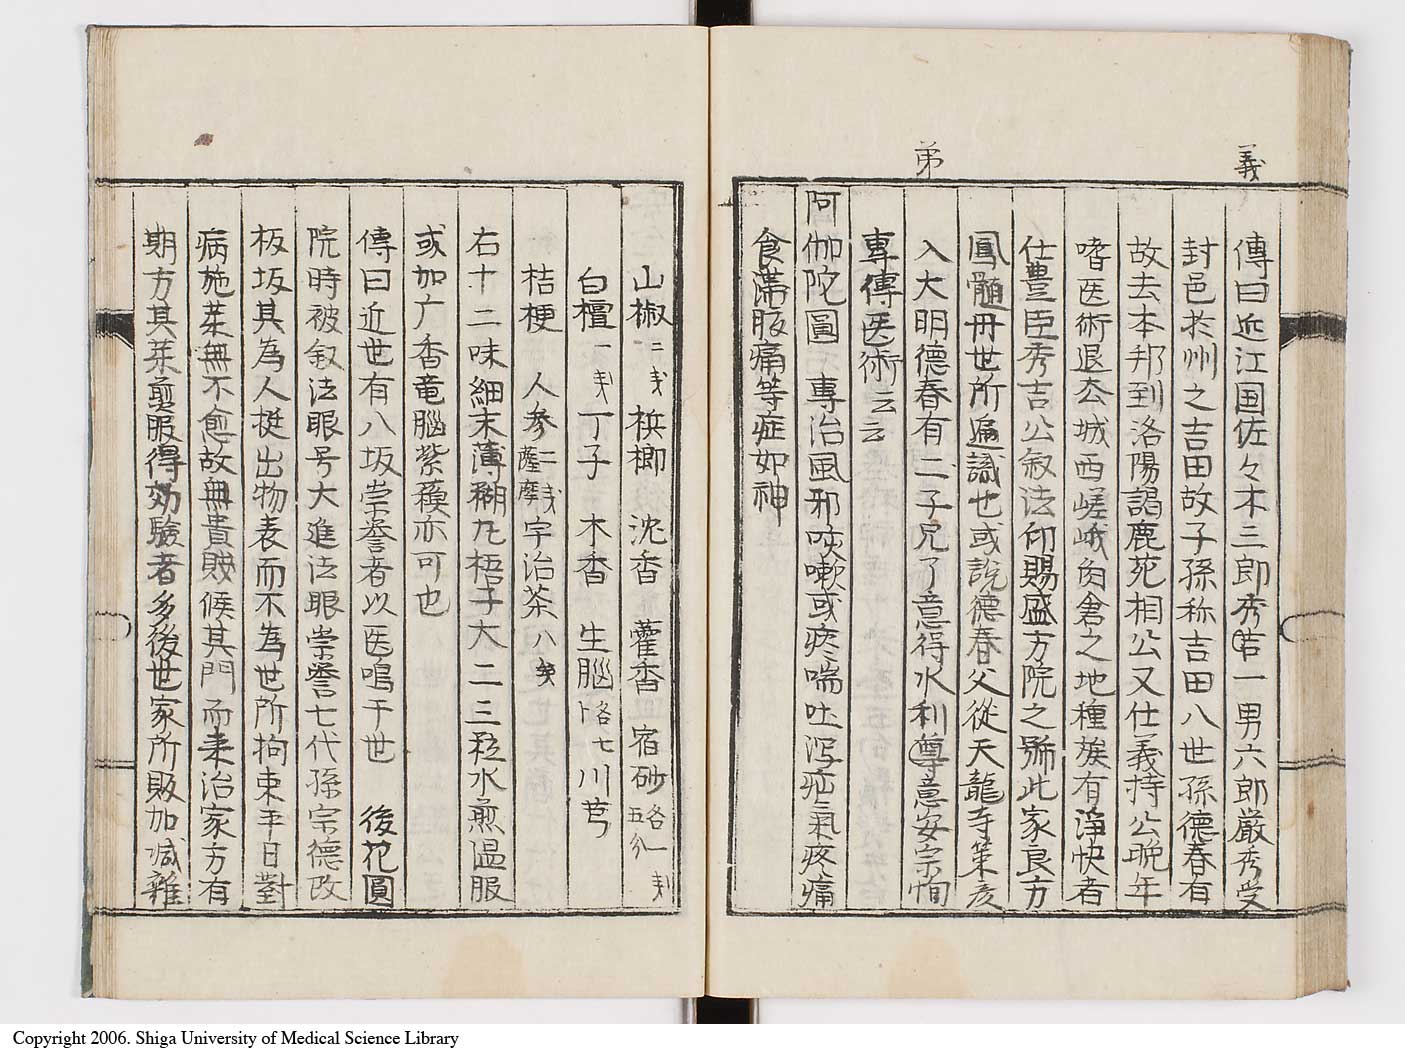 義
弟
傳曰近江国佐々木三郎秀吉一男六郎厳秀受
封邑於州之吉田故子孫称吉田八世孫德春有
故去本邦到洛陽謁鹿苑相公又仕義持公晩年
嗜医術退去城西嵯峨角倉之地種族有淨快者
仕豊臣秀吉公叙法印賜盛方院之號此家良方
鳳髓丹世所遍識也或説德春父從天龍寺策彦
入大明德春有二子兄了意得水利尊意安宗恂
專傳医術云云
阿伽陀圓 專治風邪咳嗽或痰喘吐瀉疝氣疼痛
食滞腹痛等症如神
山椒二戔 槟榔 沈香 藿香 宿砂各一戔五分
白檀一戔 丁子 木香 生脳各七卜 川芎
桔梗 人参二戔薩摩 宇治茶八戔
右十二味細末薄糊丸梧子大二三粒水煎温服
或加广香竜腦紫蘓亦可也
傳曰近世有八坂崇誉者以医鳴于世 後花圓
院時被叙法眼号大進法眼崇誉七代孫宗德改
板坂其為人挺出物表而不為世所拘束平日對
病施薬無不愈故無貴賎候其門而来治家方有
期方其薬煎服得効驗者多後世家所販加减雜
Copyright 2006. Shiga University of Medical Science Library